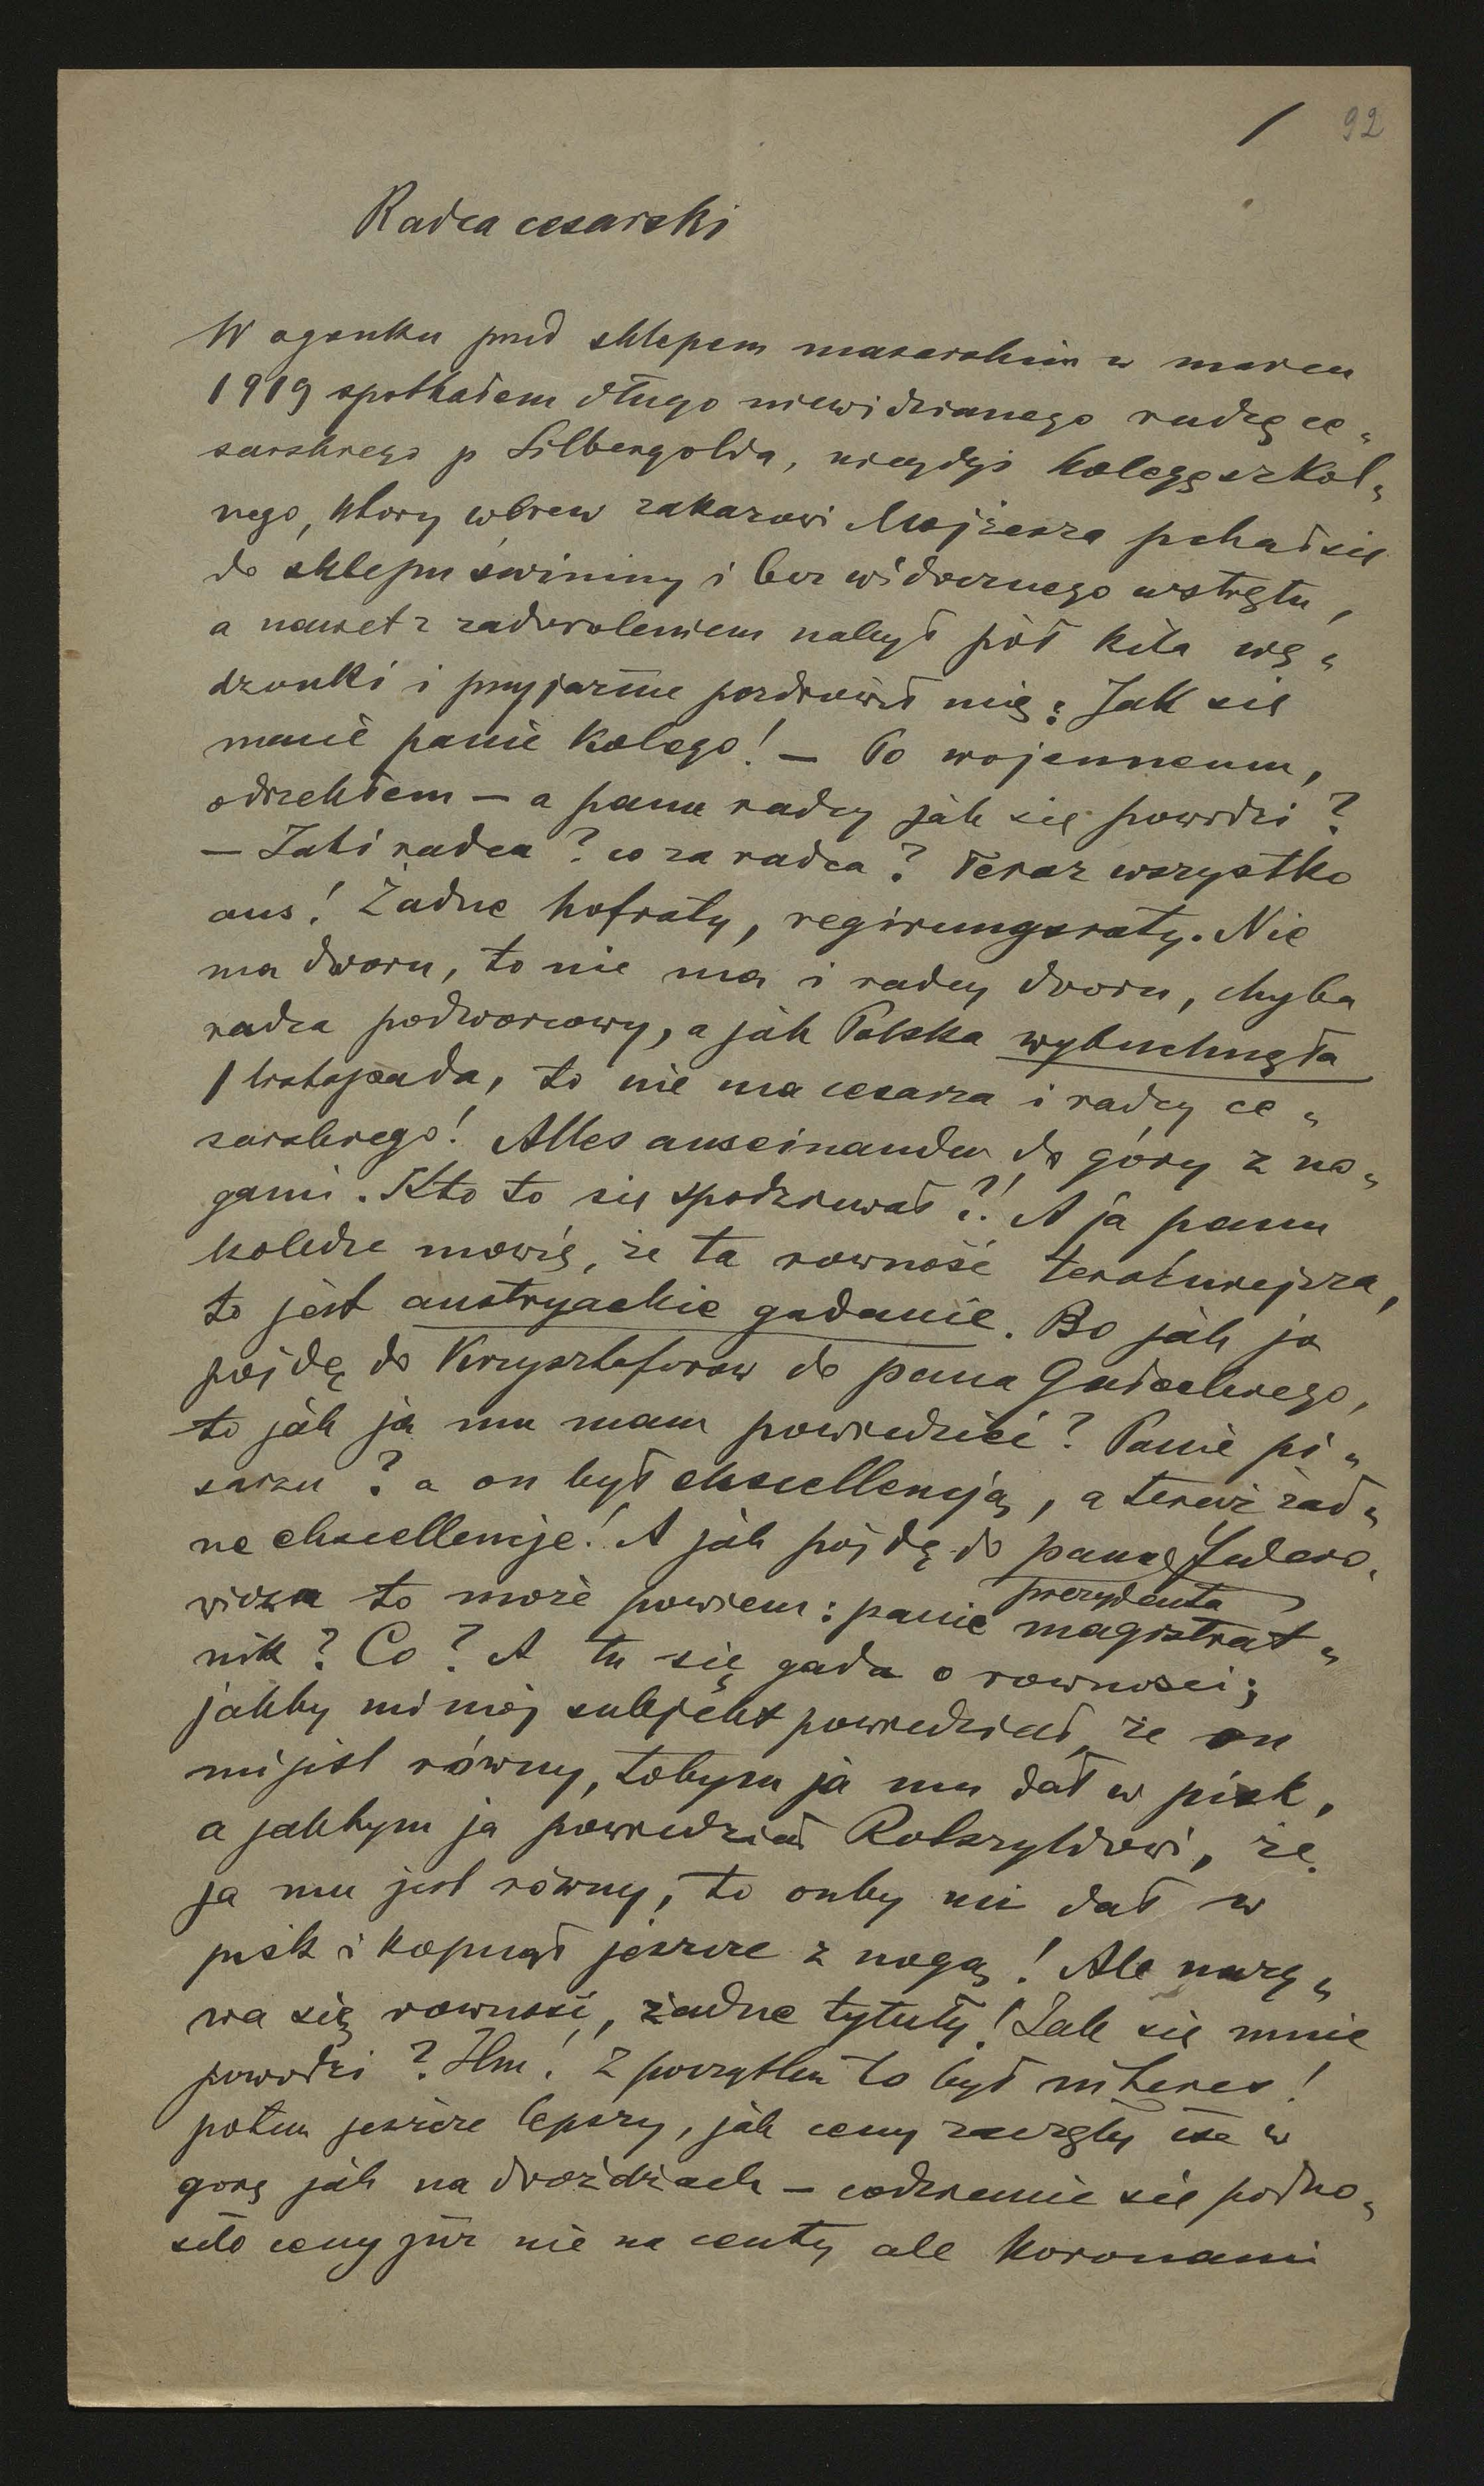 1 92
Radca cesarski
W ogonku pred sklepem masarskim w marcu
1919 spotkałem długo niewidzianego radcę ce„
sarskiego p Silbergolda, niegdyś kolegę szkol„
nego, ktory wbrew zakazowi Mojżesza pchał się
do sklepu świniny i bez widocznego wstrętu,
a nawet z zadowoleniem nabył pół kila wę„
dzonki i przyjaźnie pozdrowił mię: Jak się
macie panie kolego! — Po wojennemu,
odrzekłem — a panu radcy jak się powodzi?
— Jaki radca? co za radca? Teraz wszystko
aus! Żadne hofraty, regirungsraty. Nie
ma dworu, to nie ma i radcy dworu, chyba
radca podworcowy, a jak Polska wybuchnęła
1 listopada, to nie ma cesarza i radcy ce„
sarskiego! Alles auseinander do góry z no„
gami. Kto to się spodziewał?! A ja panu
koledze mowię, że ta rowność teraźniejsza,
to jest austryackie gadanie. Bo jak ja
pójdę do Krzysztoforow do pana Gałeckiego,
to jak ja mu mam powiedzieć? Panie pi„
sarzu? a on był ekscellencją, a teraz żad„
ne ekscellencje! A jak pójdę do pana Federo„
prezydenta
wicza to może powiem: panie magistrat„
nik? Co? A tu się gada o rowności;
jakby mi mój subjekt powiedział, że on
mi jest równy, tobym ja mu dał w pisk,
a jakbym ja powiedział Rotszyldowi, że
ja mu jest równy, to onby mi dał w
pisk i kopnął jeszcze z nogą! Ale nazy„
wa się rowność, żadne tytuły! Jak się mnie
powodzi? Hm! Z początku to był interes!
potem jeszcze lepszy, jak ceny zaczęły iść w
gorę jak na drożdżach — codziennie się podno„
siło ceny już nie na centy ale koronami